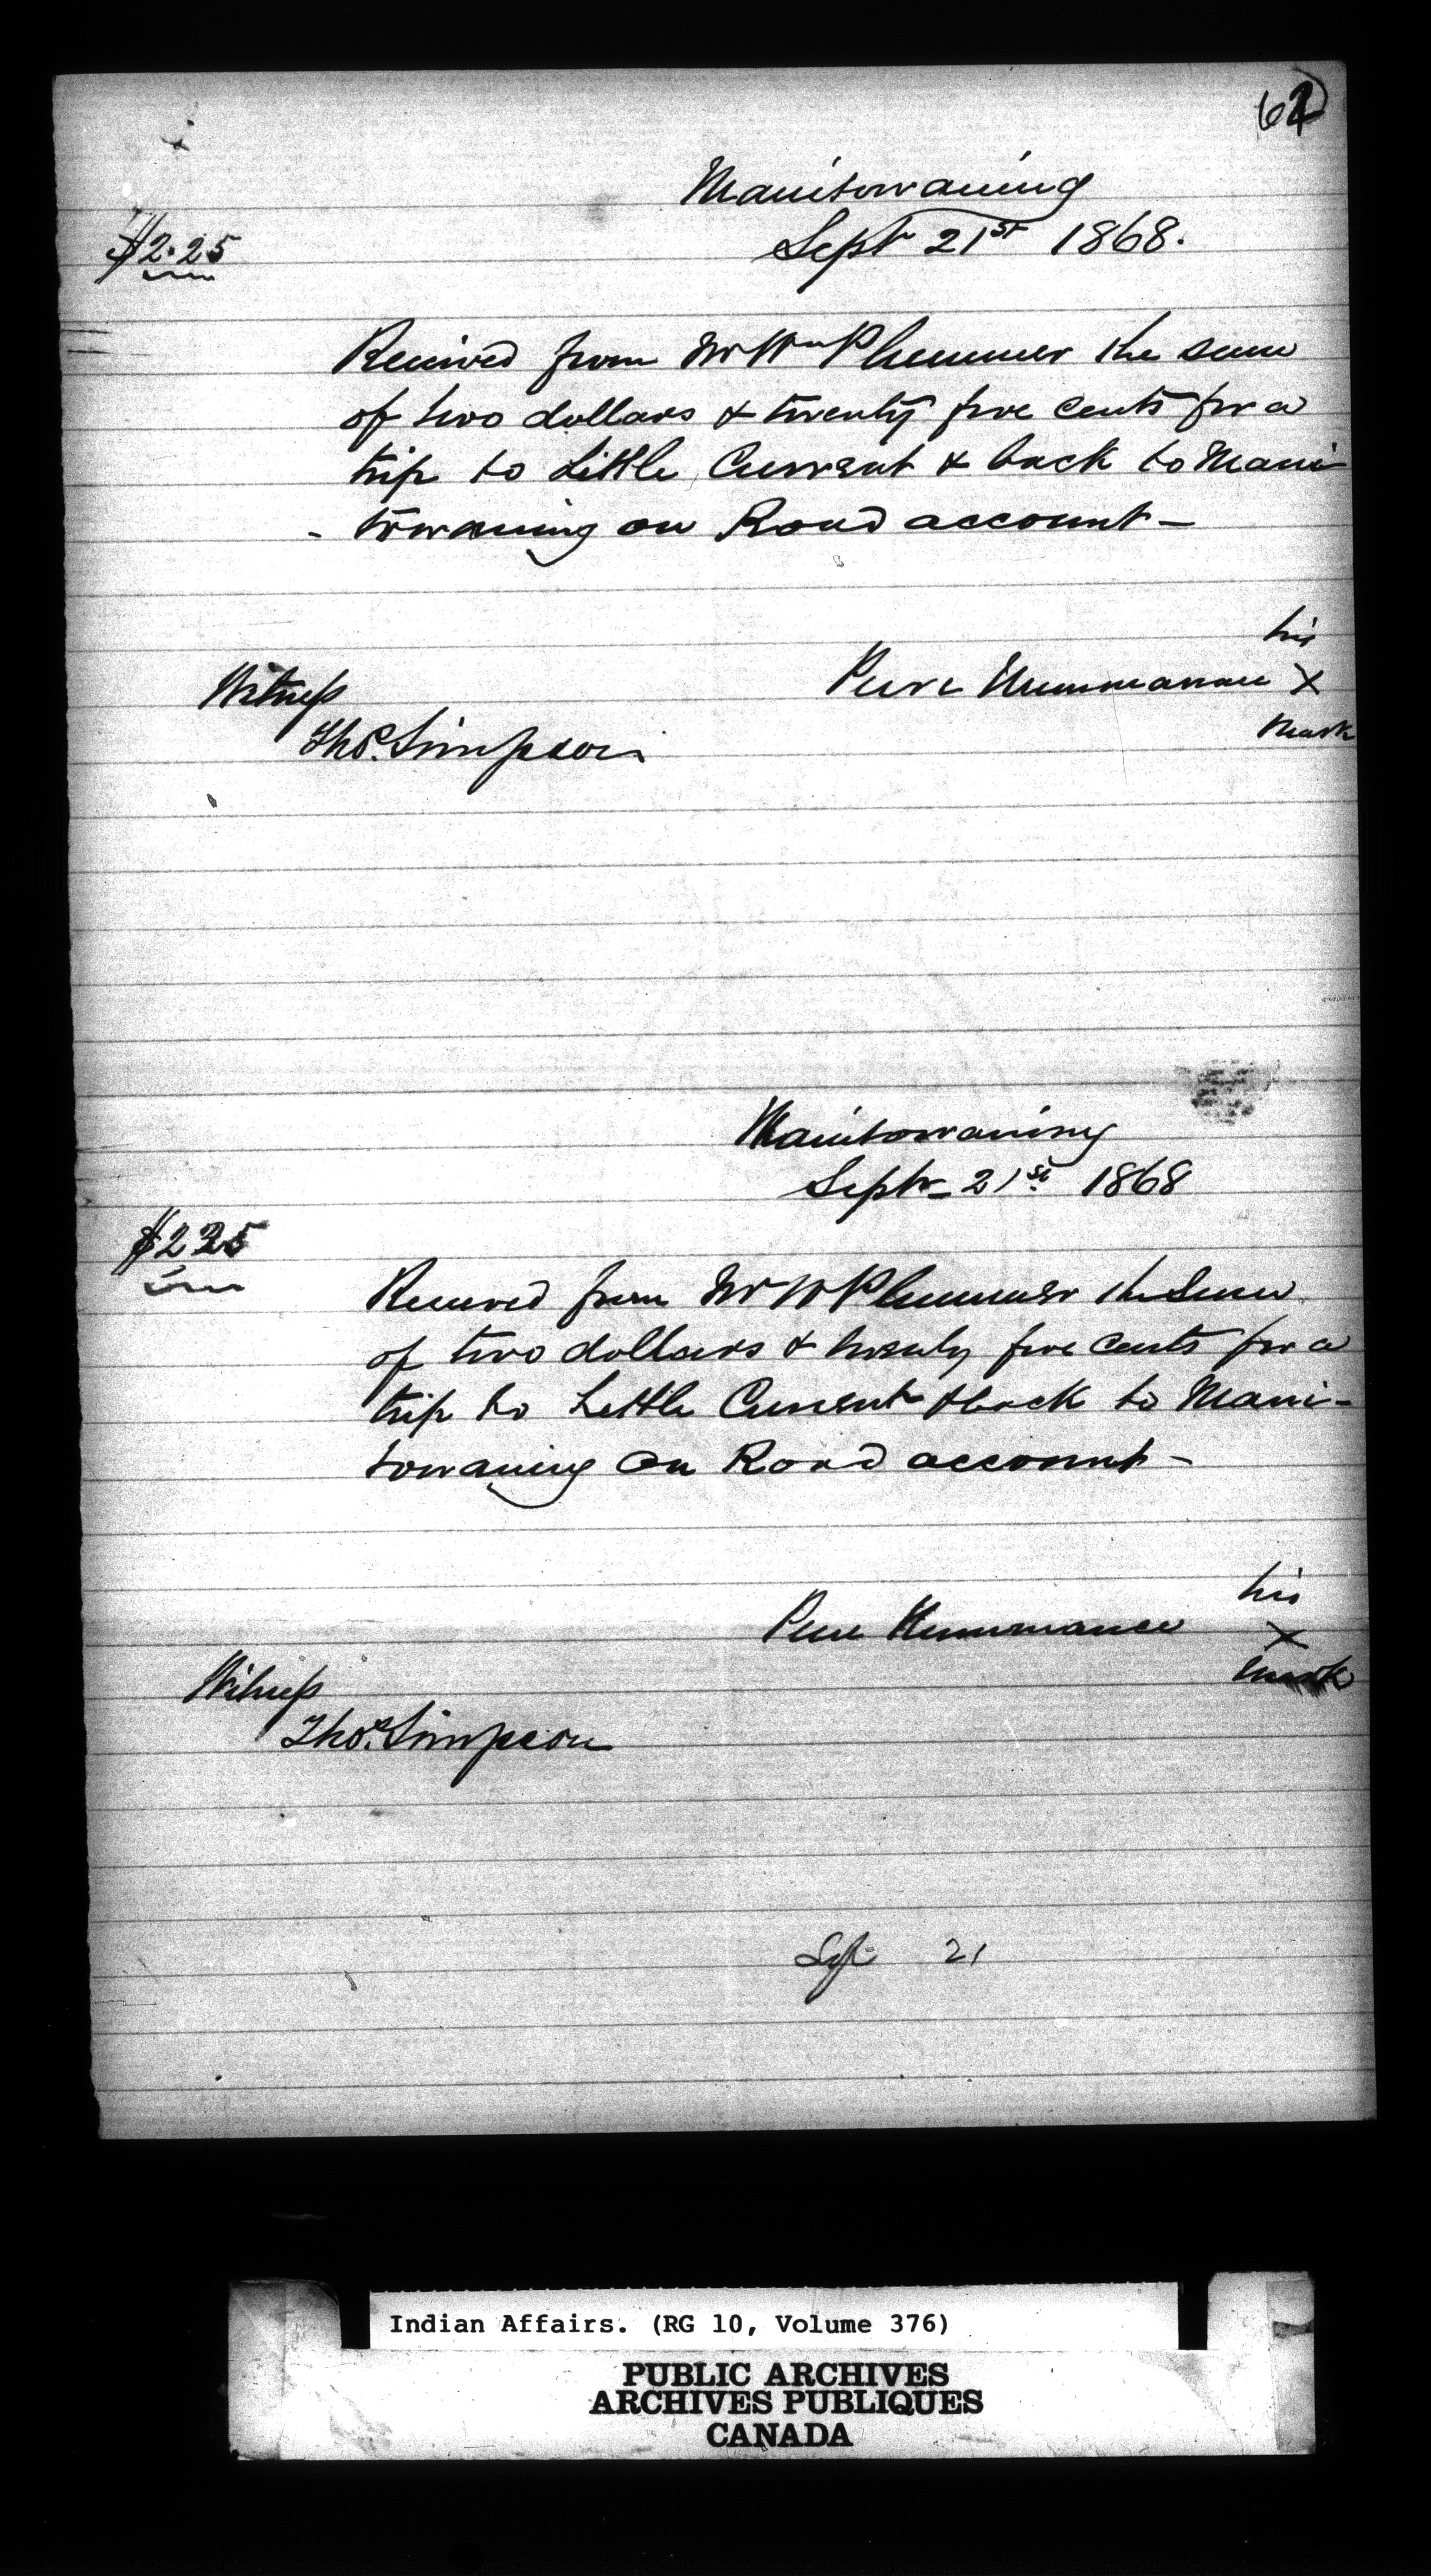 Manitowaning
Sept 21st 1868.
$2.25
Received from Mr Wm Plummer the sum
of two dollars & twenty five cents for a
trip to Little Current & back to Mani
- towaning on Road account -
his
X
mark
Witness
Thos. Simpson
Manitowaning
Septr 21st 1868
$2 25
Received from Mr W Plummer the sum
of two dollars & twenty five cents for a
trip to Little Current & back to Mani-
towaning on Road account -
his
X
mark
Witness
Thos. Simpson
Sept 21
Indian Affairs. (RG 10, Volume 376)
PUBLIC ARCHIVES
ARCHIVES PUBLIQUES
CANADA